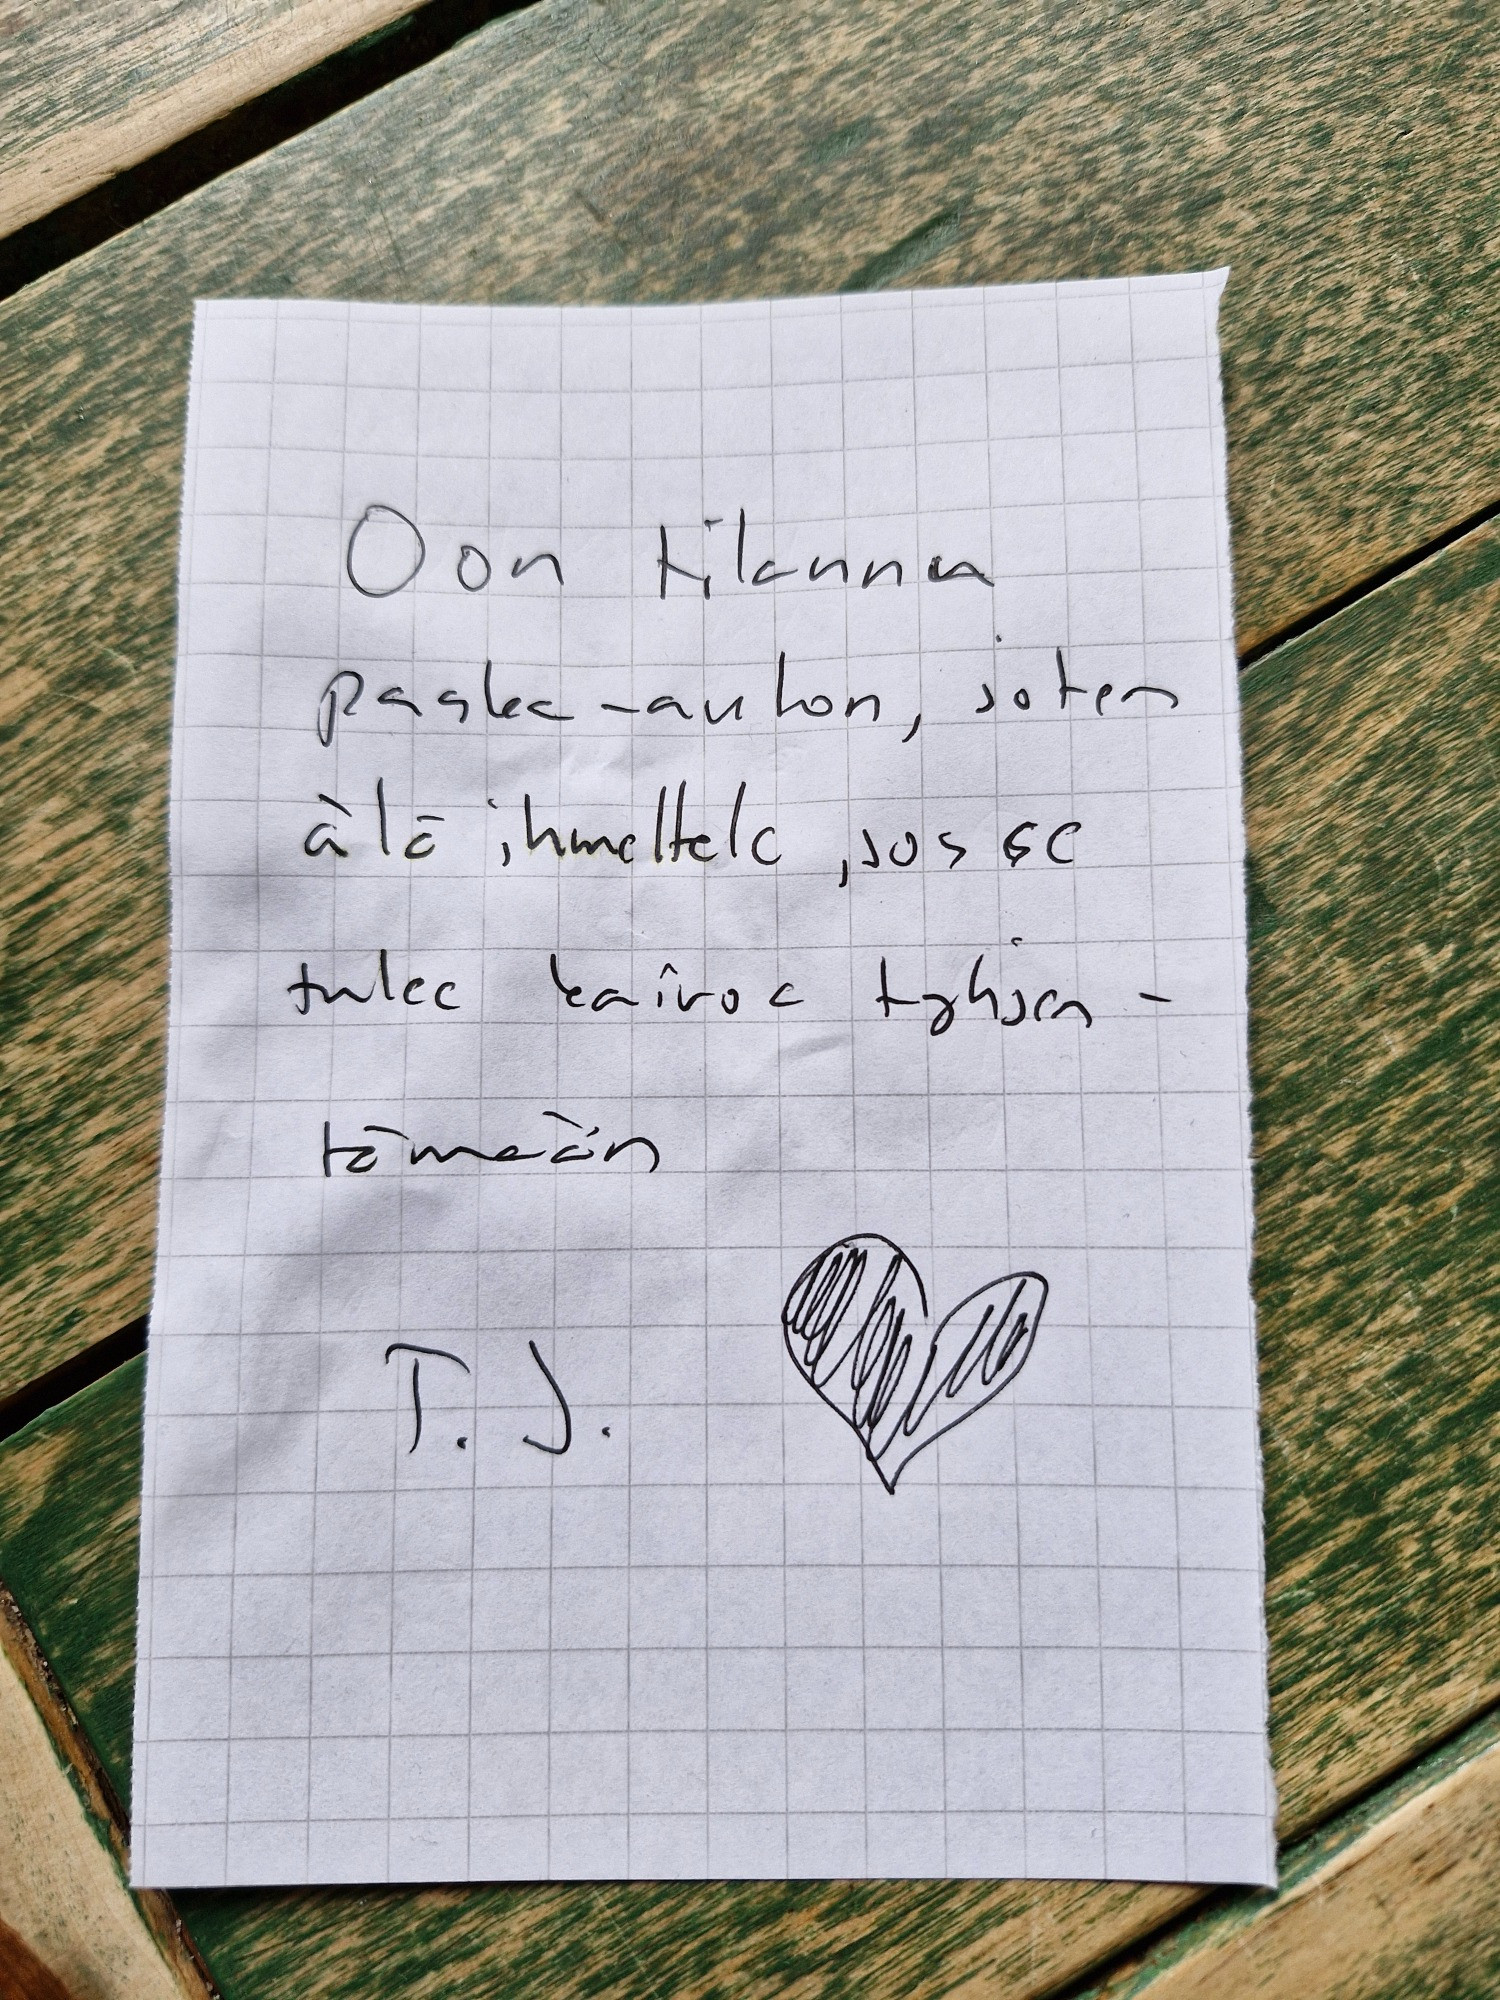 Oon tilannu
paska-auton, joten
älä ihmettele, jos se
tulee kaivoa tyhjen-
tämään
T. J.